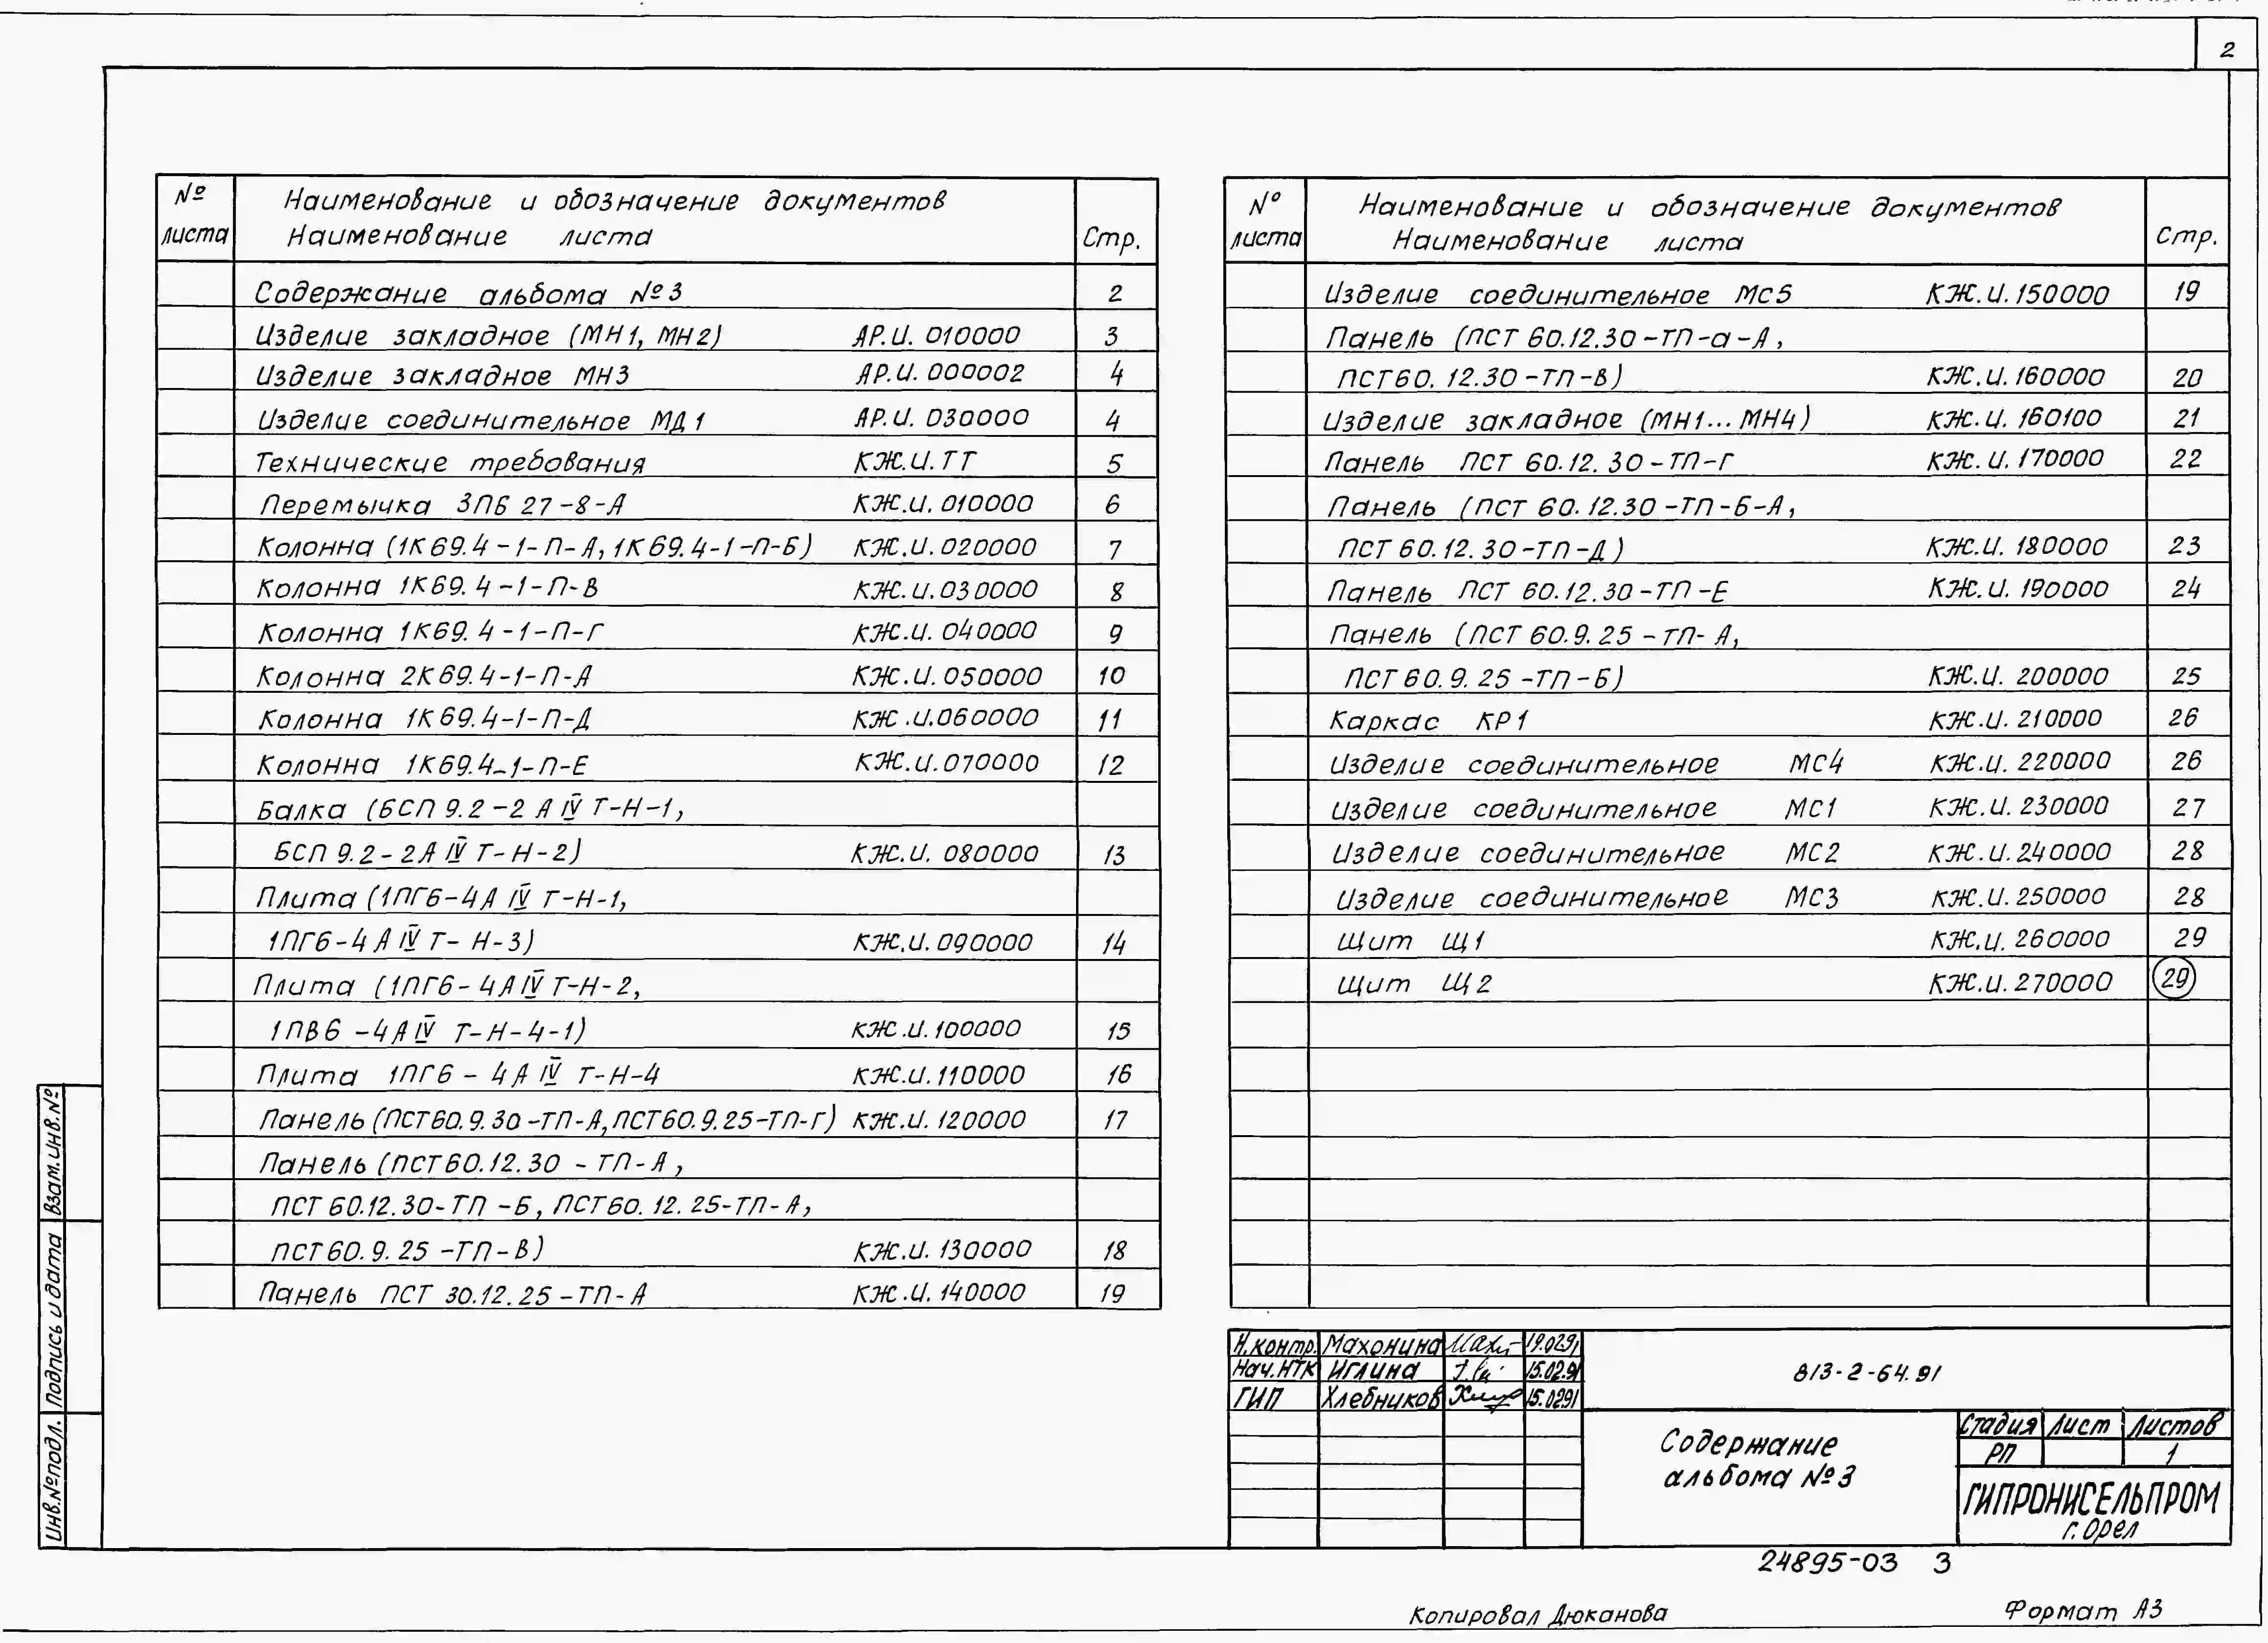 2
№ листа
Наименование и обозначение документов
Наименование листа
Стр.
Содержание альбома №3 2
Изделие закладное (МН1, МН2) АР.И. 010000 3
Изделие закладное МН3 АР.И. 000002 4
Изделие соединительное МД1 АР.И. 030000 4
Технические требования КЖ.И.ТТ 5
Перемычка 3ПБ 27-8-А КЖ.И. 010000 6
Колонна (1К69.4-1-П-А, 1К69.4-1-П-Б) КЖ.И. 020000 7
Колонна 1К69.4-1-П-В КЖ.И. 030000 8
Колонна 1К69.4-1-П-Г КЖ.И. 040000 9
Колонна 2К69.4-1-П-А КЖ.И. 050000 10
Колонна 1К69.4-1-П-Д КЖ.И. 060000 11
Колонна 1К69.4-1-П-Е КЖ.И. 070000 12
Балка (БСП 9.2-2 А IV Т-Н-1,
БСП 9.2-2А IV Т-Н-2) КЖ.И. 080000 13
Плита (1ПГ6-4А IV Т-Н-1,
1ПГ6-4А IV Т-Н-3) КЖ.И. 090000 14
Плита (1ПГ6-4А IV Т-Н-2,
1ПВ6-4А IV Т-Н-4-1) КЖ.И. 100000 15
Плита 1ПГ6-4А IV Т-Н-4 КЖ.И. 110000 16
Панель (ПСТ60.9.30-ТП-А, ПСТ60.9.25-ТП-Г) КЖ.И. 120000 17
Панель (ПСТ60.12.30-ТП-А,
ПСТ 60.12.30-ТП-Б, ПСТ60.12.25-ТП-А,
ПСТ60.9.25-ТП-В) КЖ.И. 130000 18
Панель ПСТ 30.12.25-ТП-А КЖ.И. 140000 19
№ листа
Наименование и обозначение документов
Наименование листа
Стр.
Изделие соединительное МС5 КЖ.И. 150000 19
Панель (ПСТ 60.12.30-ТП-а-А,
ПСТ60.12.30-ТП-В) КЖ.И. 160000 20
Изделие закладное (МН1...МН4) КЖ.И. 160100 21
Панель ПСТ 60.12.30-ТП-Г КЖ.И. 170000 22
Панель (ПСТ 60.12.30-ТП-Б-А,
ПСТ 60.12.30-ТП-Д) КЖ.И. 180000 23
Панель ПСТ 60.12.30-ТП-Е КЖ.И. 190000 24
Панель (ПСТ 60.9.25-ТП-А,
ПСТ 60.9.25-ТП-Б) КЖ.И. 200000 25
Каркас КР1 КЖ.И. 210000 26
Изделие соединительное МС4 КЖ.И. 220000 26
Изделие соединительное МС1 КЖ.И. 230000 27
Изделие соединительное МС2 КЖ.И. 240000 28
Изделие соединительное МС3 КЖ.И. 250000 28
Щит Щ1 КЖ.И. 260000 29
Щит Щ2 КЖ.И. 270000 29
Взам.инв.№
Подпись и дата
Инв.№подл.
Н.контр. Махонина 19.0291
Нач.НТК Иглина 15.02.91
ГИП Хлебников 15.0291
813-2-64.91
Содержание
альбома №3
Стадия Лист Листов
РП 1
ГИПРОНИСЕЛЬПРОМ
г. Орел
24895-03 3
Копировал Дюканова
Формат А3